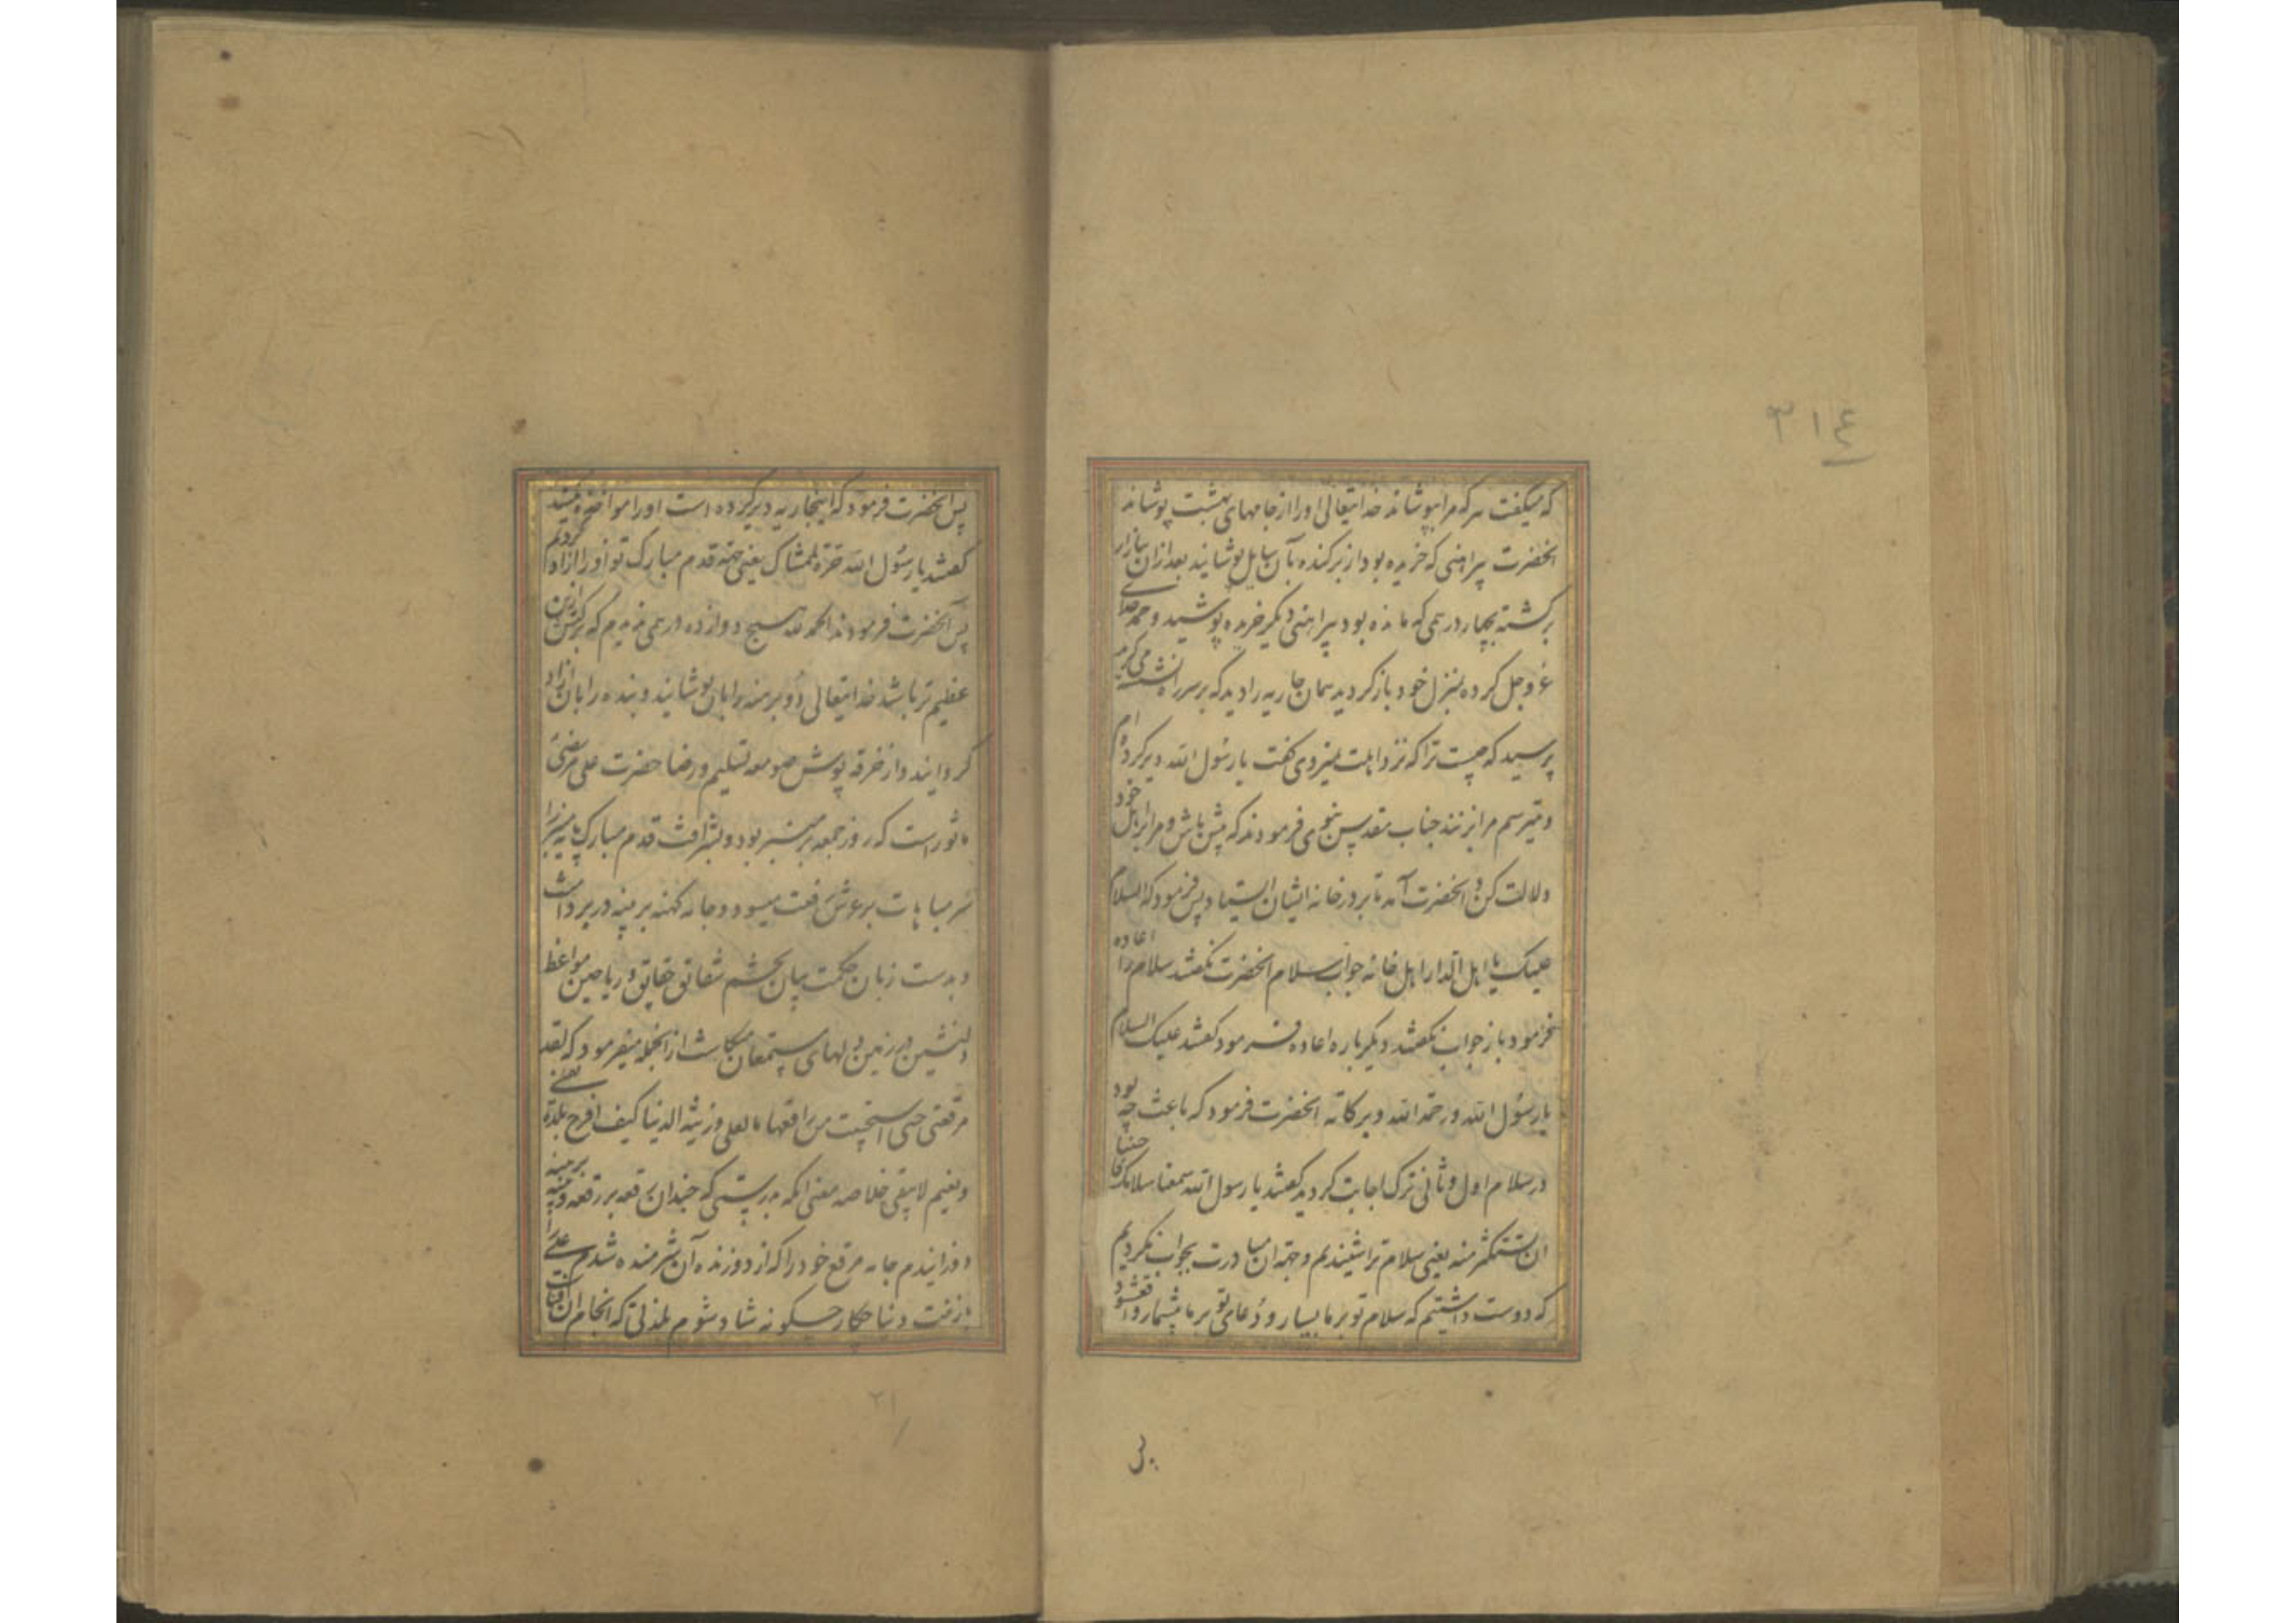 ۳۱۴
که میگفت هر که مرا بپوشاند خدایتعالی اورا از جامهای بهشت پوشاند
انحضرت پیراهنی که خریده بود از بر کنده بآن سایل پوشانید بعد ازان ببازار
برکشته بچهار درهمی که مانده بود پیراهنی دیکر خریده پوشید و حمد خدای
عز وجل کرده بمنزل خود باز کردید همان جاریه را دید که بر سر راه نشسته میکرید
پرسید که چیست ترا که نزد اهلت نمیروی کفت یا رسول الله دیر کرده ام
و میترسم مرا بزنند جناب مقدس نبوی فرمودند که پیش باش و مرا بر اهل خود
دلالت کن و انحضرت آمد تا بر در خانه ایشان ایستاد پس فرمود که السلام
علیک یا اهل الدار اهل خانه جواب سلام انحضرت نکفتند سلام را اعاده
فرمود باز جواب نکفتند دیکر باره اعاده فرمود کفتند علیک السلام
یا رسول الله ورحمة الله وبرکاته انحضرت فرمود که باعث چه بود
در سلام اول و ثانی ترک اجابت کردید کفتند یا رسول الله سمعنا سلامک فاحببنا
ان نستکثر منه یعنی سلام ترا شنیدیم و جهة ان مبادرت بجواب نکردیم
که دوست داشتیم که سلام تو بر ما بسیار و دعای تو بر ما بیشمار واقع شود
پس انحضرت فرمود که اینجاریه دیر کرده است اورا مواخذه مکنید
کفتند یا رسول الله حرة لممشاک یعنی جهة قدم مبارک تو اورا ازاد کردیم
پس آنحضرت فرمودند الحمد لله هیچ دوازده درهمی ندیدم که برکتش ازین
عظیم تر باشد خدایتعالی دو برهنه را بان پوشانید و بنده را بان ازاد
کردانید و از خرقه پوش صومعه تسلیم و رضا حضرت علی مرتضی
ماثور است که روز جمعه بر منبر بود و بشرافت قدم مبارک پایه منبر را
سر مباهات بر عرش رفعت میسود و جامه کهنه بر پینه در بر داشت
و بدست زبان حکمت بیان تخم شقائق حقایق و ریاحین مواعظ
دلنشین در زمین دلهای مستمعان میکاشت از انجمله میفرمود که لقد
مرقعتی حتی استحییت من راقعها ما لعلی وزینة الدنیا کیف افرح بلذة تفنی
ونعیم لا یبقی خلاصه معنی انکه بدرستی که چندان رقعه بر رقعه و پینه بر پینه
دوزانیدم جامه مرقع خود را که از دوزنده آن شرمنده شدم علی را
بازینت دنیا چکار چکونه شاد شوم بلذتی که انجام ان فناست